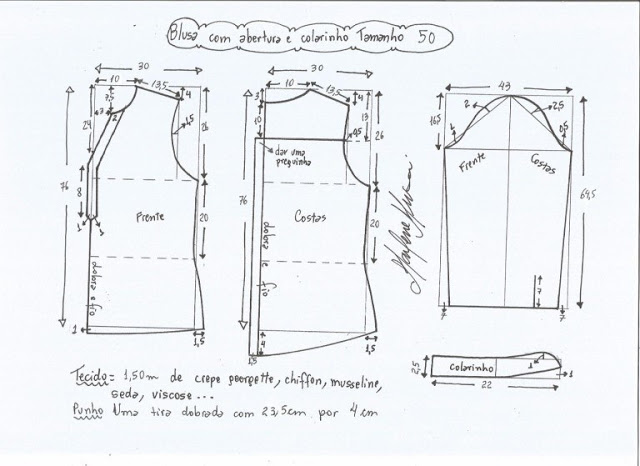 Blusa com abertura e colarinho Tamanho 50
30
10
13,5
4
7,5
3
2
24
1,5
26
76
8
1
1
Frente
20
dobra e fio
1
1,5
30
10
13,5
4
3
10
13
0,5
26
dar uma
preguinha
76
Costas
20
dobra e fio
4
1,5
1,5
43
16,5
2
2,5
1
0,5
Frente
Costas
64,5
7
7
7
2,5
colarinho
1
1
22
Tecido = 1,50m de crepe georgette, chiffon, musseline,
seda, viscose...
Punho Uma tira dobrada com 23,5cm por 4cm